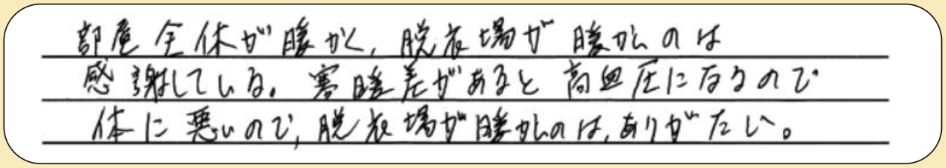 部屋全体が暖かく、脱衣場が暖かいのは
感謝している。寒暖差があると高血圧になるので
体に悪いので、脱衣場が暖かいのは、ありがたい。